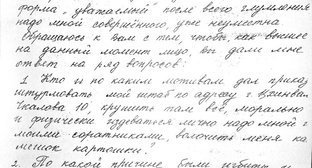 форма „уважаемый" после всего глумления
надо мной совершённого, уже неуместна
Обращаюсь к Вам с тем, чтобы, как высшее
на данный момент лицо, вы дали мне
ответ на ряд вопросов:
1. Кто и по каким мотивам дал приказ
штурмовать мой штаб по адресу г. Цхинвал
Чкалова 10, крушить там всё, морально
и физически издеваться лично надо мной и
моими соратниками, волочить меня как
мешок картошки?
2. По какой причине были избиты и